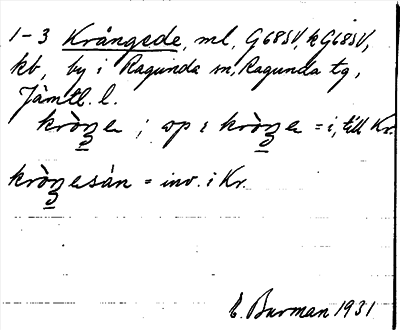 1-3 Krångede, ml, G68SV, k G68SV,
kb, by i Ragunda sn, Ragunda tg,
Jämtl. l.
kròŋe ; op : kròŋe = i, till Kr.
kròŋesán = inv. i Kr.
E. Burman 1931